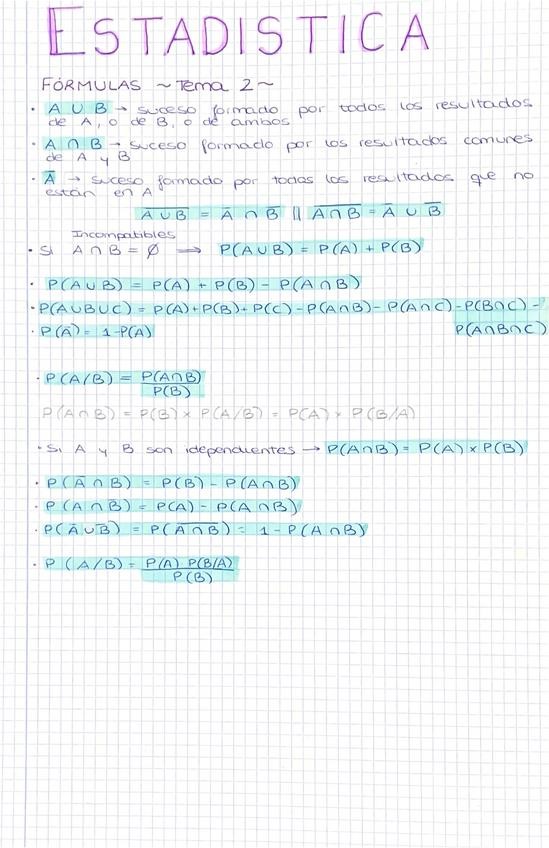 ESTADISTICA
FÓRMULAS ~ Tema 2 ~
· A ∪ B → suceso formado por todos los resultados
de A, o de B, o de ambos
· A ∩ B → suceso formado por los resultados comunes
de A y B
· A̅ → suceso formado por todas los resultados que no
están en A
A̅∪̅B̅ = A̅ ∩ B̅ || A̅∩̅B̅ = A̅ ∪ B̅
Incompatibles
· Si A ∩ B = ∅ → P(A∪B) = P(A) + P(B)
· P(A∪B) = P(A) + P(B) - P(A∩B)
· P(A∪B∪C) = P(A)+P(B)+P(C)-P(A∩B)-P(A∩C)-P(B∩C)-
P(A∩B∩C)
· P(A̅) = 1-P(A)
· P(A/B) = P(A∩B)
P(B)
P(A∩B) = P(B) × P(A/B) = P(A) × P(B/A)
· Si A y B son idependientes → P(A∩B) = P(A) × P(B)
· P(A̅∩B) = P(B) - P(A∩B)
· P(A∩B̅) = P(A) - P(A∩B)
· P(A̅∪B̅) = P(A̅∩̅B̅) = 1-P(A∩B)
· P(A/B) = P(A) P(B/A)
P(B)